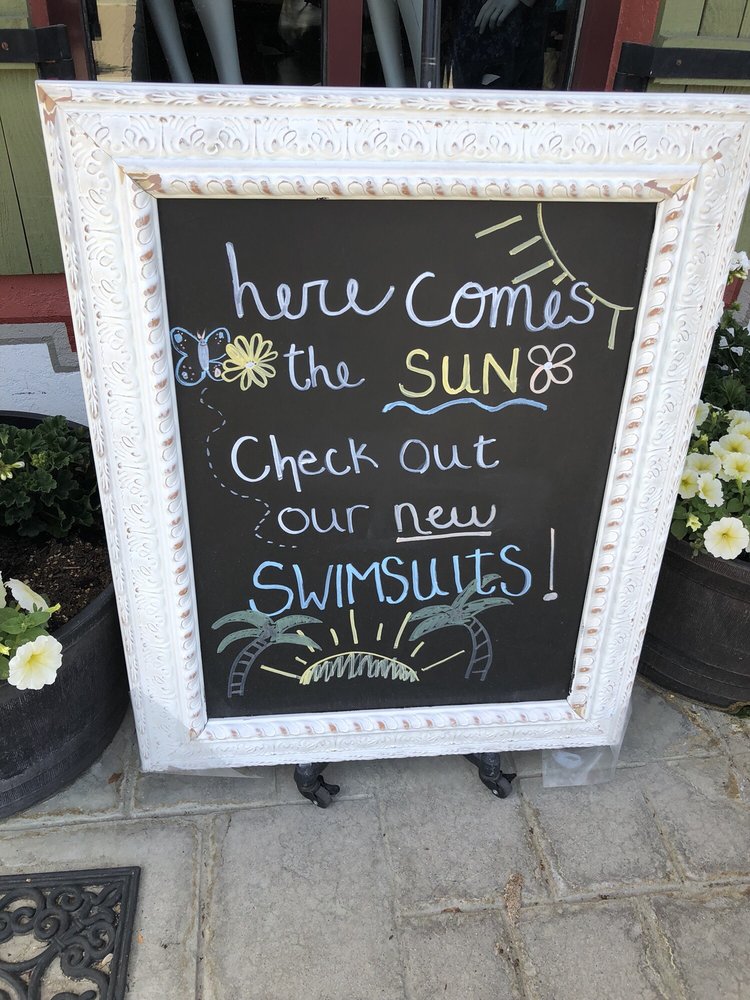 here comes
the SUN
Check out
our new
SWIMSUITS!